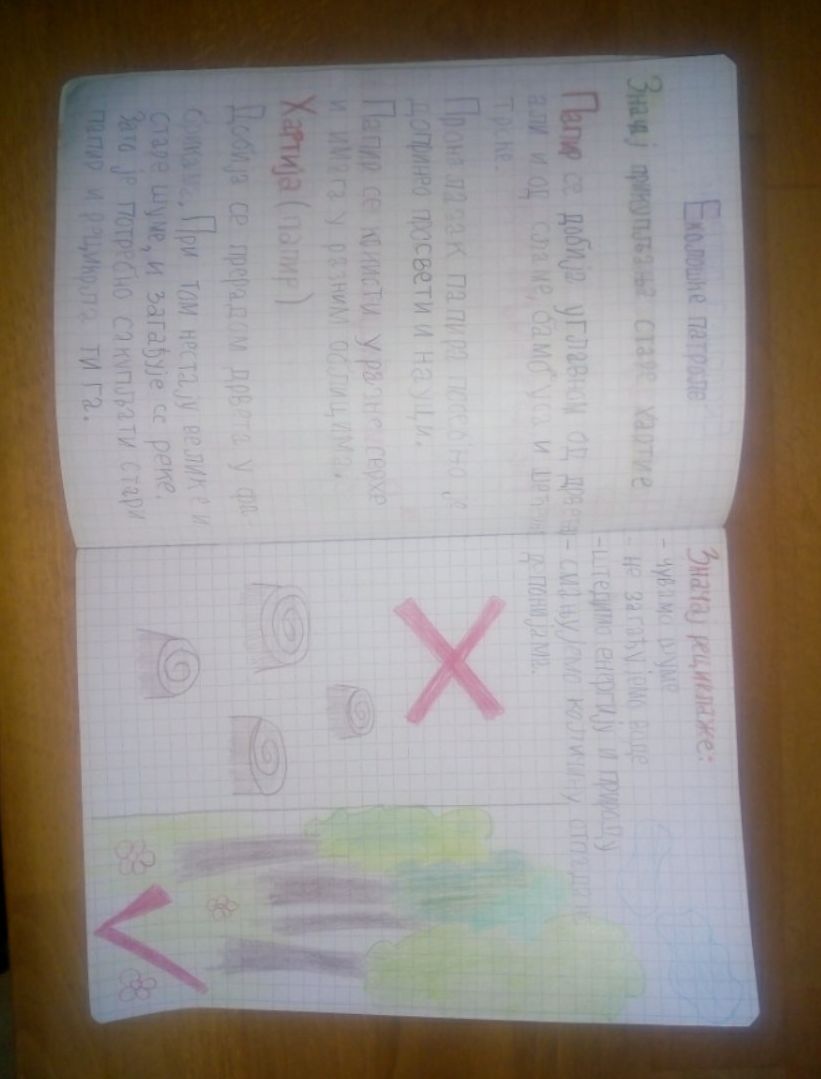 Еколошке патроле
Значај прикупљања старе хартије
Папир се добија углавном од дрвета
али и од сламе, бамбуса и
тркне.
Проналазак папира посебно је
допринео просвети и науци.
Папир се користи у разне сврхе
и има га у разним облицима.
Хартија (папир)
Добија се прерадом дрвета у фа
брикама. При том нестају велике и
старе шуме, и загађује се реке.
Зато је потребно сакупљати стари
папир и рециклирати га.
Значај рециклаже:
- чувамо шуме
- не загађујемо воде
- штедимо енергију и природу
- смањујемо количину отпада на
депонијама.